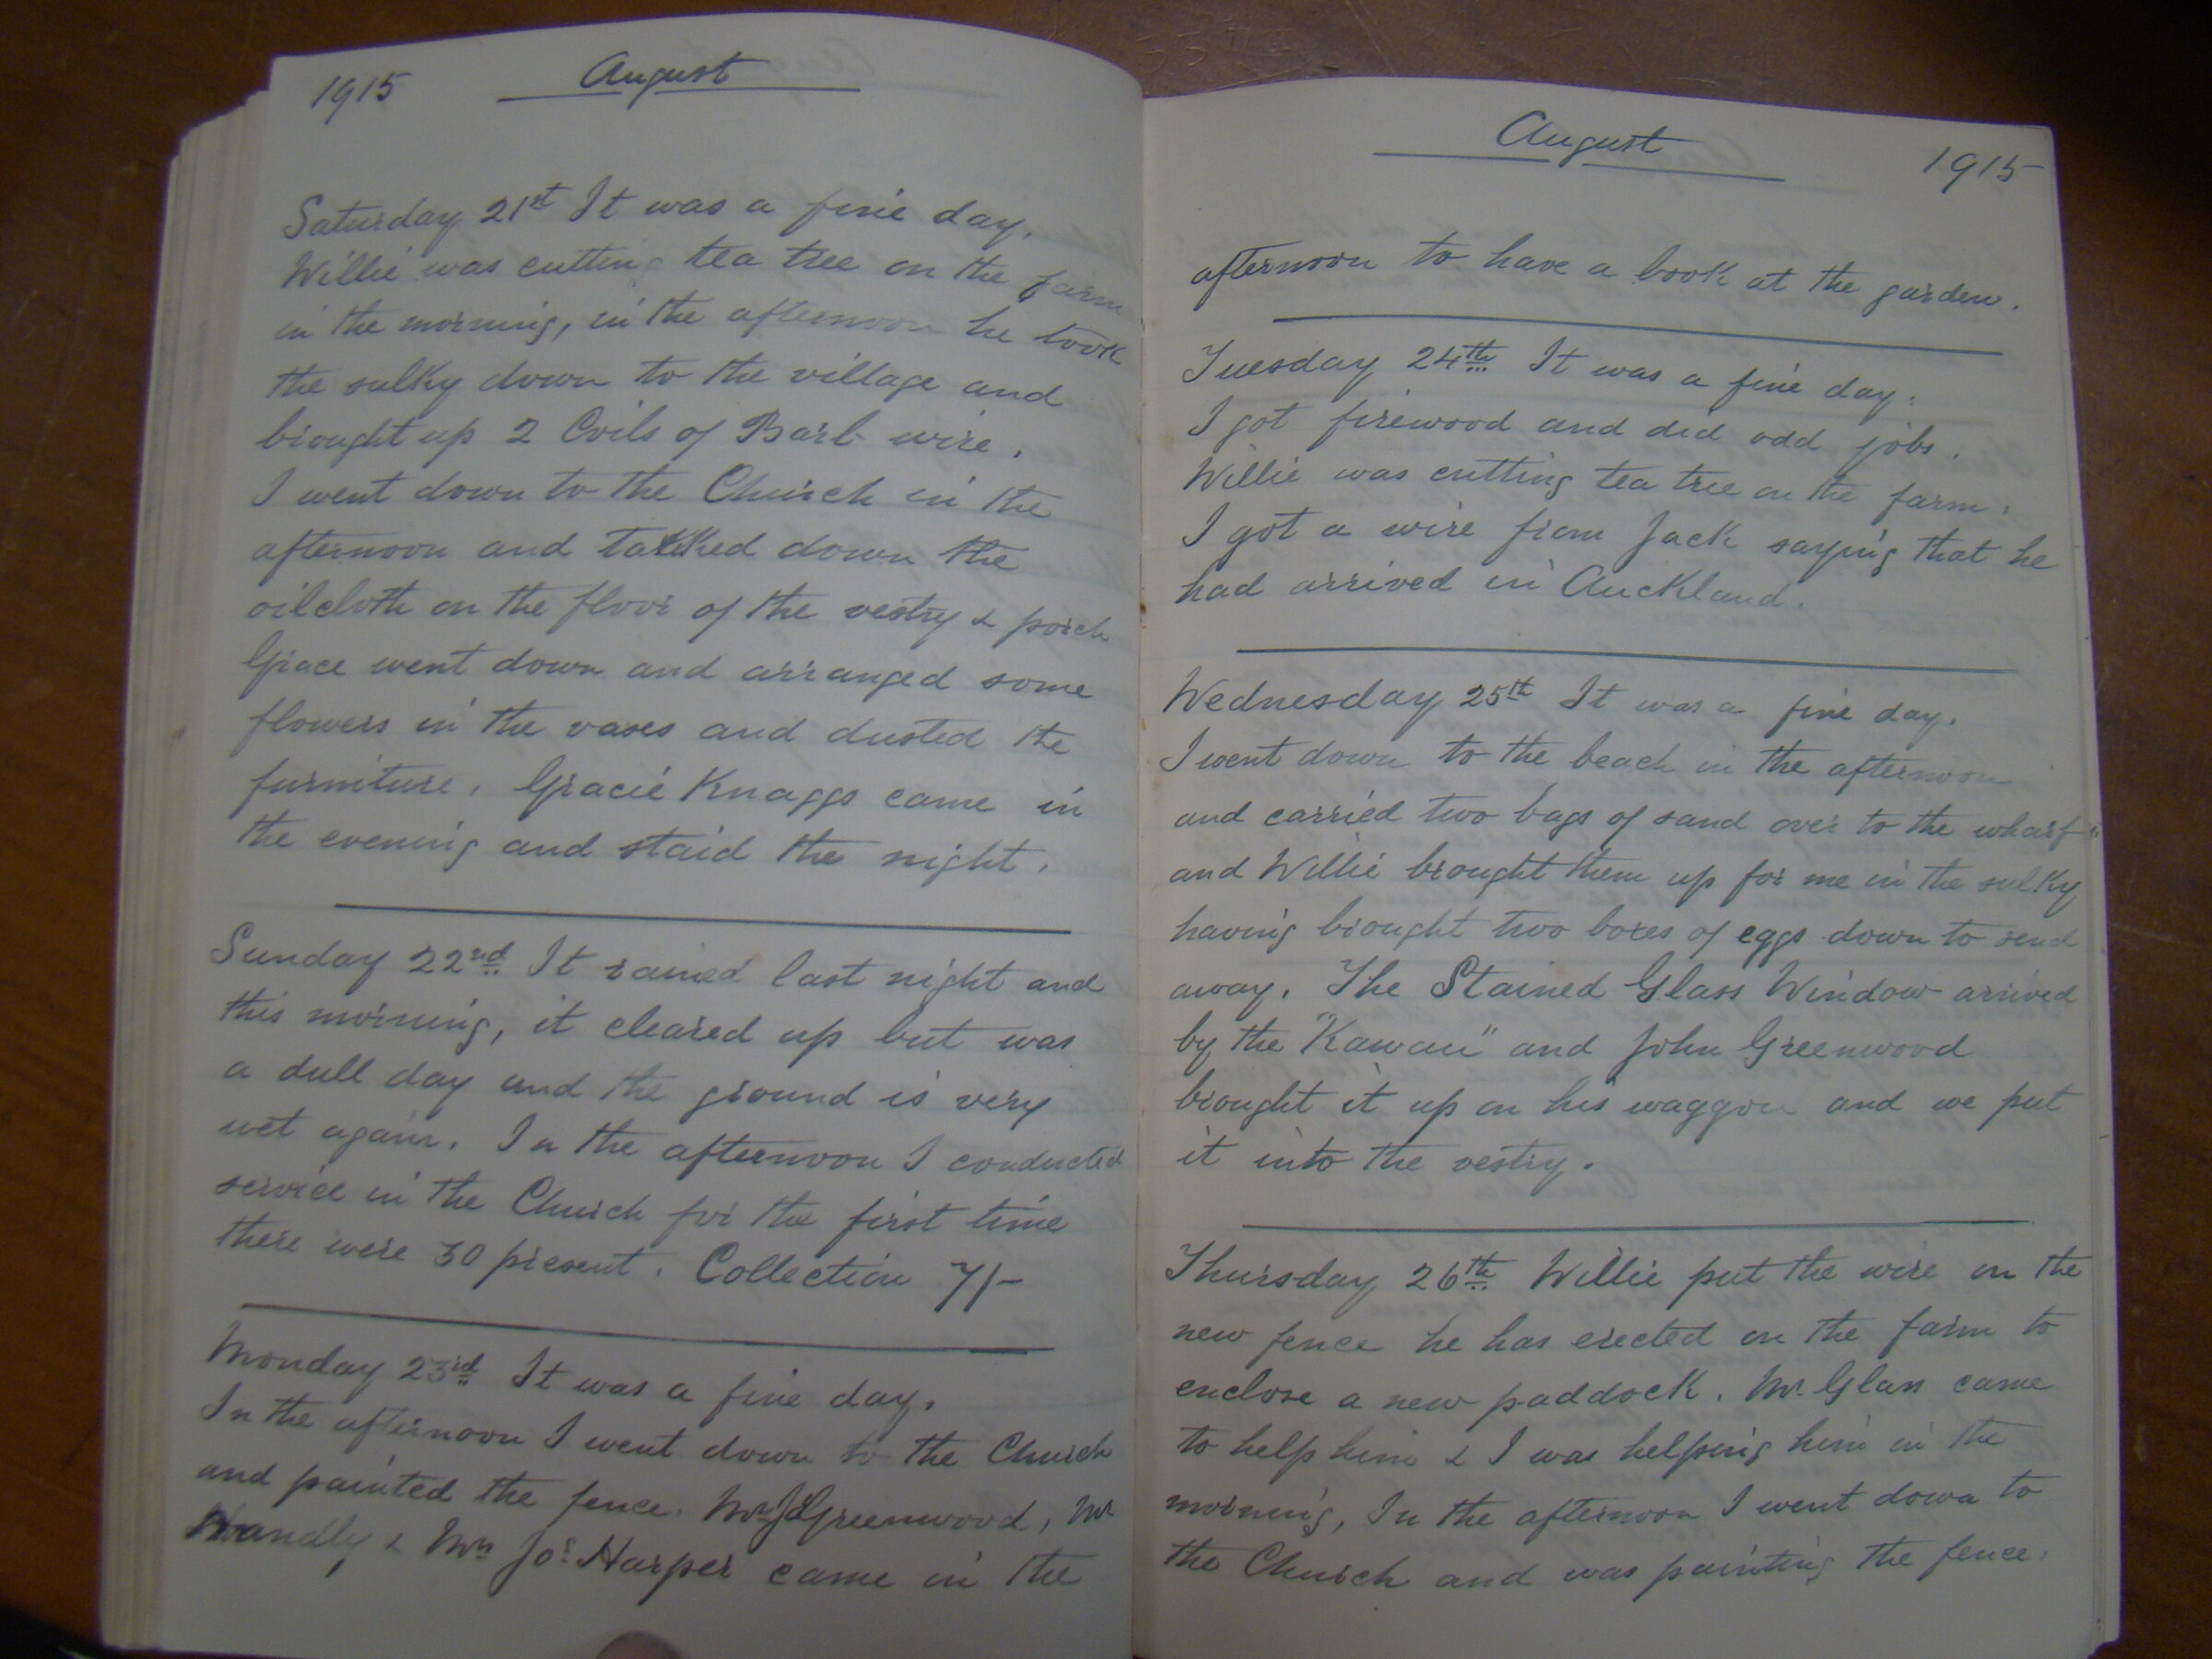 1915 August
Saturday 21st It was a fine day.
Willie was cutting tea tree on the farm
in the morning, in the afternoon he took
the sulky down to the village and
brought up 2 Coils of Barb wire.
I went down to the Church in the
afternoon and tacked down the
oilcloth on the floor of the vestry & porch
Grace went down and arranged some
flowers in the vases and dusted the
furniture. Gracie Knaggs came in
the evening and staid the night.
Sunday 22nd It rained last night and
this morning, it cleared up but was
a dull day and the ground is very
wet again. In the afternoon I conducted
service in the Church for the first time
there were 30 present. Collection 7/-
Monday 23rd It was a fine day.
In the afternoon I went down to the Church
and painted the fence. Greenwood, Mr
& Mrs Jos Harper came in the
August 1915
afternoon to have a look at the garden.
Tuesday 24th It was a fine day.
I got firewood and did odd jobs.
Willie was cutting tea tree on the farm.
I got a wire from Jack saying that he
had arrived in Auckland.
Wednesday 25th It was a fine day.
I went down to the beach in the afternoon
and carried two bags of sand over to the wharf
and Willie brought them up for me in the sulky
having brought two boxes of eggs down to send
away. The Stained Glass Window arrived
by the "Kawau" and John Greenwood
brought it up on his waggon and we put
it into the vestry.
Thursday 26th Willie put the wire on the
new fence he has erected on the farm to
enclose a new paddock. Mr. Glass came
to help him & I was helping him in the
morning, In the afternoon I went down to
the Church and was painting the fence.